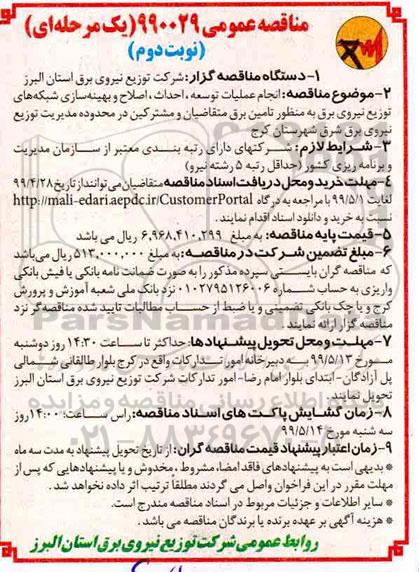 مناقصه عمومی ۹۹۰۰۲۹ (یک مرحله‌ای)
(نوبت دوم)
۱- دستگاه مناقصه گزار: شرکت توزیع نیروی برق استان البرز
۲- موضوع مناقصه: انجام عملیات توسعه، احداث، اصلاح و بهینه‌سازی شبکه‌های
توزیع نیروی برق به منظور تامین برق متقاضیان و مشترکین در محدوده مدیریت توزیع
نیروی برق شرق شهرستان کرج
۳- شرایط لازم: شرکتهای دارای رتبه بندی معتبر از سازمان مدیریت
و برنامه ریزی کشور (حداقل رتبه ۵ رشته نیرو)
۴- مهلت خرید و محل دریافت اسناد مناقصه متقاضیان می‌توانند از تاریخ ۹۹/۴/۲۸
لغایت ۹۹/۵/۱ با مراجعه به درگاه http://mali-edari.aepdc.ir/CustomerPortal
نسبت به خرید و دانلود اسناد اقدام نمایند.
۵- قیمت پایه مناقصه: به مبلغ ۶,۹۶۸,۴۱۰,۲۹۹ ریال می باشد
۶- مبلغ تضمین شرکت در مناقصه: به مبلغ ۵۱۳,۰۰۰,۰۰۰ ریال می‌باشد
که مناقصه گران بایستی سپرده مذکور را به صورت ضمانت نامه بانکی یا فیش بانکی
واریزی به حساب شماره ۰۱۰۲۷۹۵۱۲۶۰۰۶ نزد بانک ملی شعبه آموزش و پرورش
کرج و یا چک بانکی تضمینی و یا ضبط از حساب مطالبات تایید شده مناقصه‌گر نزد
مناقصه گزار ارائه نمایند.
۷- مهلت و محل تحویل پیشنهادها: حداکثر تا ساعت ۱۴:۳۰ روز دوشنبه
مورخ ۹۹/۵/۱۳ به دبیرخانه امور تدارکات واقع در کرج بلوار طالقانی شمالی
پل آزادگان- ابتدای بلوار امام رضا- امور تدارکات شرکت توزیع نیروی برق استان البرز
تحویل نمایند.
۸- زمان گشایش پاکت های اسناد مناقصه: راس ساعت: ۱۴:۰۰ روز
سه شنبه مورخ ۹۹/۵/۱۴
۹- زمان اعتبار پیشنهاد قیمت مناقصه گران: از تاریخ تحویل پیشنهاد به مدت سه ماه
* بدیهی است به پیشنهادهای فاقد امضا، مشروط، مخدوش و یا پیشنهادهایی که پس از
مهلت مقرر در این فراخوان واصل می گردند مطلقاً ترتیب اثر داده نخواهد شد.
* سایر اطلاعات و جزئیات مربوط در اسناد مناقصه مندرج است.
* هزینه آگهی بر عهده برنده یا برندگان مناقصه می باشد.
روابط عمومی شرکت توزیع نیروی برق استان البرز
ParsNamadData
۰۲۱-۸۸۳۴۹۶۷۰